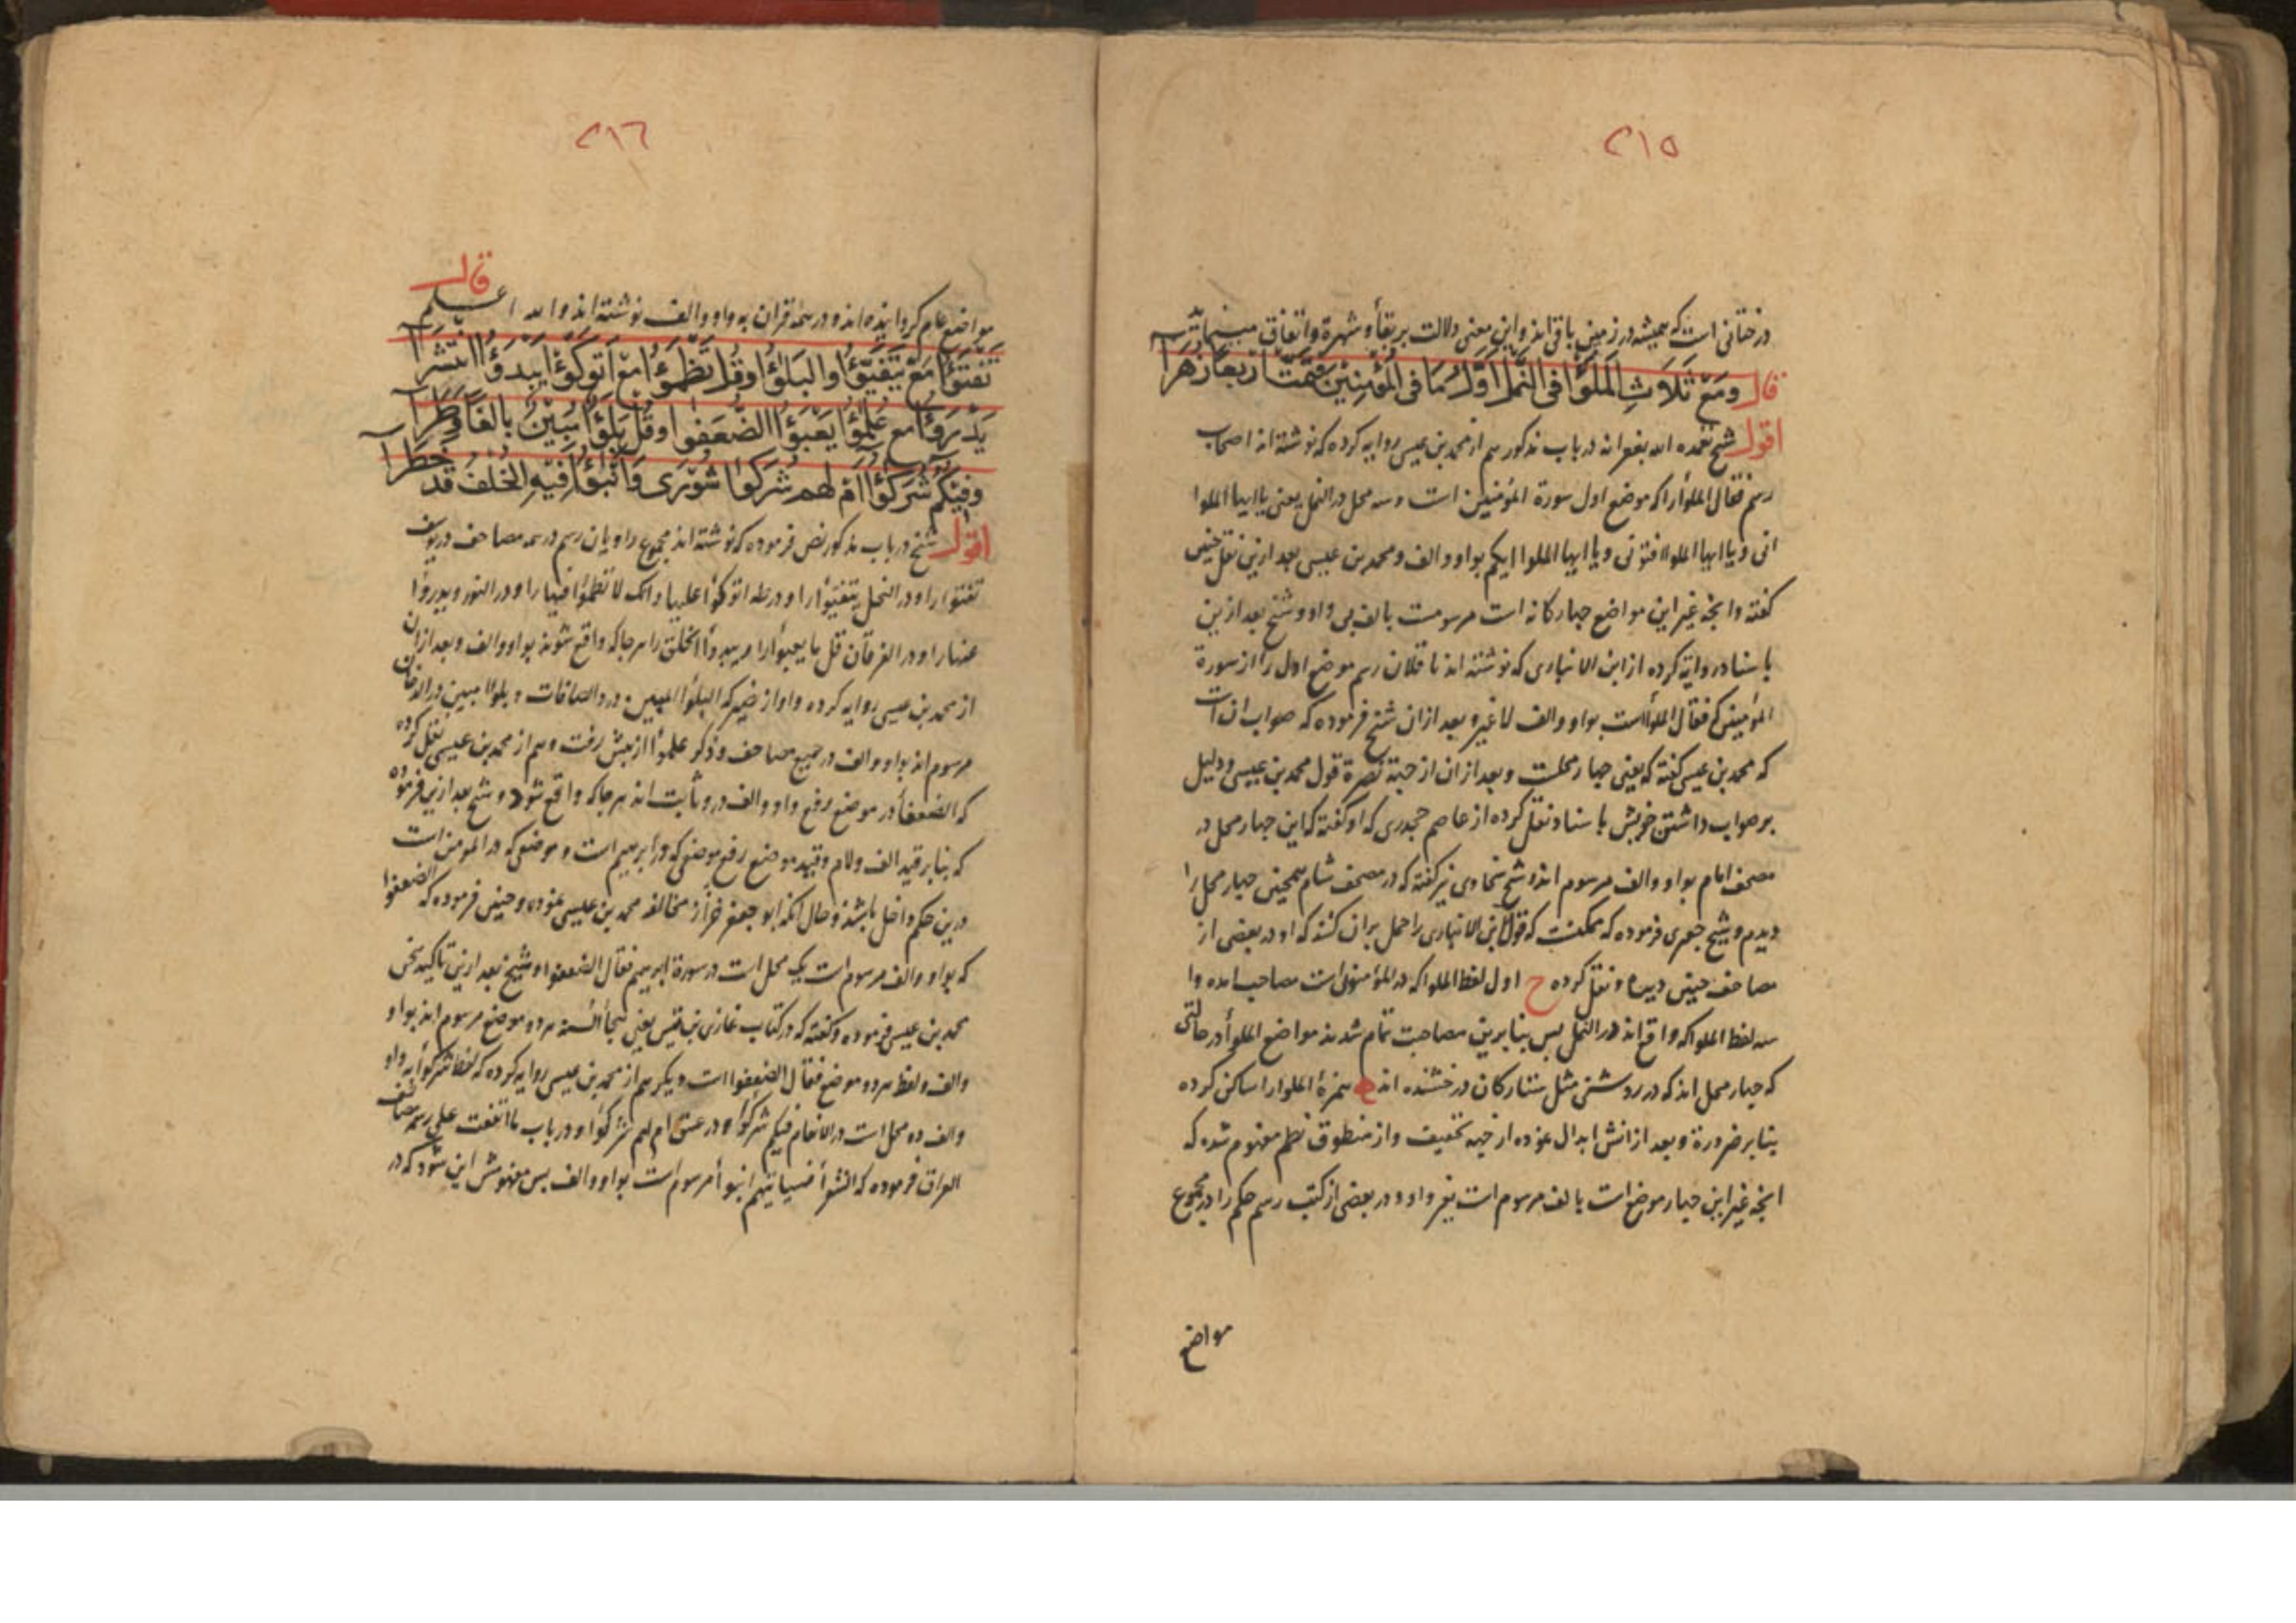 ٢١٥
درختانی است که همیشه در زمین باقی اند و این معنی دلالت بر بقا و شهرة و اتفاق میکند
قال ومع ثلاث الملؤا في النمل اول ما في المؤمنين فتمت اربعا زهرا
اقول شیخ تغمده الله بغفرانه در باب مذکور هم از محمد بن عیسی روایه کرده که نوشته اند اصحاب
رسم فقال الملؤا را که موضع اول سورة المؤمنین است و سه محل در النمل یعنی یا ایها الملوا
انی و یا ایها الملوا افتونی و یا ایها الملوا ایکم بواو و الف و محمد بن عیسی بعد ازین نقل چنین
کفته و انچه غیر این مواضع چهارکانه است مرسومست بالف بی واو و شیخ بعد ازین
باسناد روایة کرده از ابن الانباری که نوشته اند ناقلان رسم موضع اول را از سورة
المؤمنین که فقال الملؤا است بواو و الف لا غیر و بعد ازان شیخ فرموده که صواب ان است
که محمد بن عیسی کفته که یعنی چهار محلست و بعد ازان از جهة نصرة قول محمد بن عیسی و دلیل
بر صواب داشتن خویش باسناد نقل کرده از عاصم جحدری که او کفته که این چهار محل در
مصحف امام بواو و الف مرسوم اند و شیخ سخاوی نیز کفته که در مصحف شام همچنین چهار محل را
دیدم و شیخ جعبری فرموده که ممکنست که قول ابن الانباری را حمل بران کنند که او در بعضی از
مصاحف چنین دیده و نقل کرده ح اول لفظ الملوا که در المؤمنون است مصاحب امده وا
سه لفظ الملوا که واقع اند در النمل پس بنابرین مصاحبت تمام شدند مواضع الملؤا در حالتی
که چهار محل اند که در روشنی مثل ستارکان درخشنده اند همزۀ الملوا را ساکن کرده
بنابر ضرورة و بعد از انش ابدال نموده از جهة تخفیف و از منطوق نظم مفهوم شده که
انچه غیر این چهار موضع است بالف مرسوم است بغیر واو و در بعضی از کتب رسم حکم را در مجموع
مواضع
٢١٦
قال
مواضع عام کردانیده اند و در همه قران به واو و الف نوشته اند و الله اعلم
تفتؤا مع يتفيؤا والبلؤا وقل تظمؤا مع اتوكؤا يبدؤا انتشرا
يدرؤا مع علمؤا يعبؤا الضعفؤا وقل بلؤا مبين بالغا وطرا
وفيكم شركؤا ام لهم شركؤا شورى وانبؤا فيه الخلف قد خطرا
اقول شیخ در باب مذکور نص فرموده که نوشته اند مجموع راویان رسم در همه مصاحف در یوسف
تفتؤا را و در النحل یتفیؤا را و در طه اتوکؤا علیها و انک لا تظمؤا فیها را و در النور و یدرؤا
عنها را و در الفرقان قل ما یعبؤا را و یبدؤا الخلق را هر جا که واقع شوند بواو و الف و بعد ازان
از محمد بن عیسی روایه کرده و او از نصیر که البلؤا المبین در و الصافات و بلؤا مبین در الدخان
مرسوم اند بواو و الف در جمیع مصاحف و ذکر علمؤا از پیش رفت و هم از محمد بن عیسی نقل کرده
که الضعفا در موضع رفع واو و الف در و ثابت اند هر جا که واقع شود و شیخ بعد ازین فرموده
که بنابر قید الف و لام و قید موضع رفع موضعی که در ابرهیم است و موضعی که در المؤمن است
درین حکم داخل باشند و حال انکه ابو جعفر خزاز مخالفه محمد بن عیسی نموده و چنین فرموده که الضعفوا
که بواو و الف مرسوم است یک محل است در سورة ابرهیم فقال الضعفوا و شیخ بعد ازین تاکید سخن
محمد بن عیسی فرموده و کفته که در کتاب غازی بن قیس یعنی هجأ السنه هر دو موضع مرسوم اند بواو
و الف و لفظ هر دو موضع فقال الضعفوا است و دیکر هم از محمد بن عیسی روایه کرده که لفظ شرکؤا به واو
و الف دو محل است در الانعام فیکم شرکؤا و در عسق ام لهم شرکؤا و در باب ما اتفقت علی رسمه مصاحف
العراق فرموده که الشعرأ فسیاتیهم انبوأ مرسوم است بواو و الف پس مفهومش این شود که در